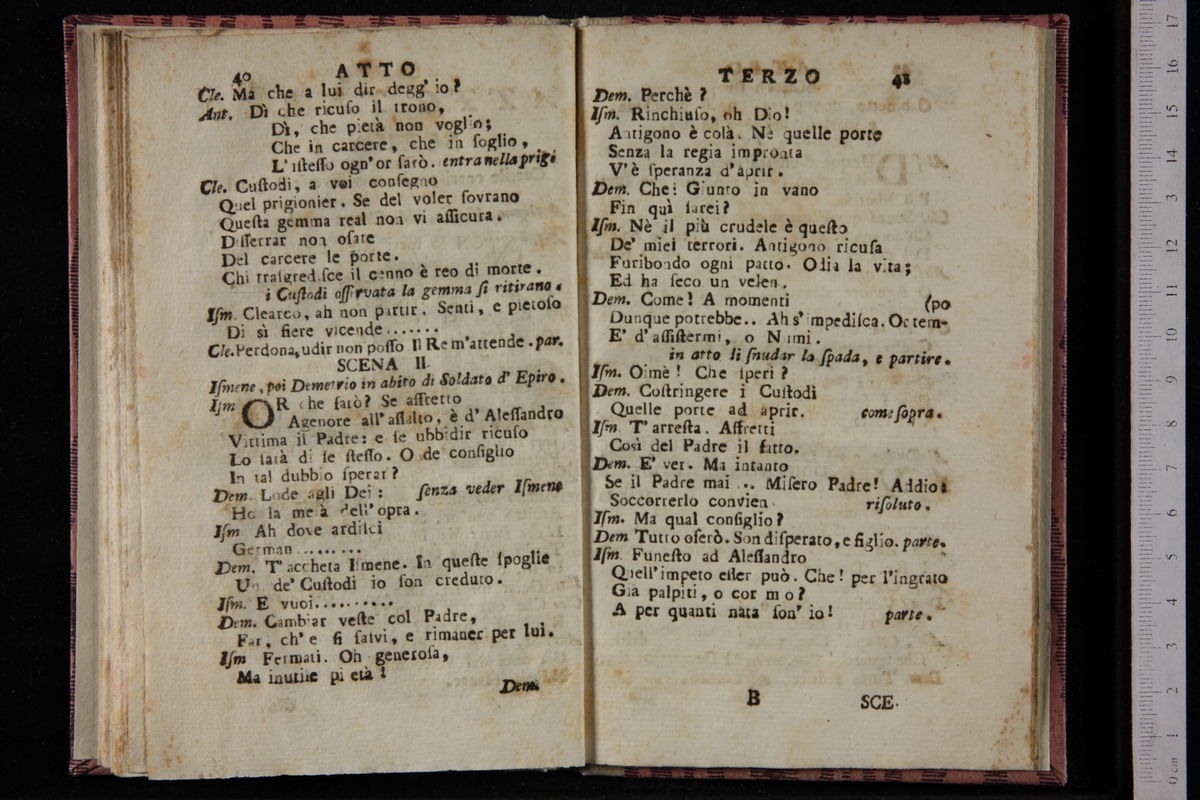 40 ATTO
Cle. Ma che a lui dir degg' io?
Ant. Dì che ricuſo il trono,
Dì, che pietà non voglio;
Che in carcere, che in ſoglio,
L' iſteſſo ogn' or ſarò. entra nella prigi
Cle. Cuſtodi, a voi conſegno
Quel prigionier. Se del voler ſovrano
Queſta gemma real non vi aſſicura.
Diſſerrar non oſate
Del carcere le porte.
Chi traſgrediſce il cenno è reo di morte.
i Cuſtodi oſſervata la gemma ſi ritirano.
Iſm. Clearco, ah non partir. Senti, e pietoſo
Di sì fiere vicende.......
Cle. Perdona, udir non poſſo Il Re m'attende. par.
SCENA II.
Iſmene, poi Demetrio in abito di Soldato d' Epiro.
Iſm OR che farò? Se affretto
Agenore all' aſſalto, è d' Aleſſandro
Vittima il Padre: e ſe ubbidir ricuſo
Lo ſarà di ſe ſteſſo. Onde conſiglio
In tal dubbio ſperar?
Dem. Lode agli Dei: ſenza veder Iſmene
Ho la metà dell' opra.
Iſm Ah dove ardiſci
German........
Dem. T' accheta Iſmene. In queſte ſpoglie
Un de' Cuſtodi io ſon creduto.
Iſm. E vuoi..........
Dem. Cambiar veſte col Padre,
Far, ch' e ſi ſalvi, e rimaner per lui.
Iſm Fermati. Oh generoſa,
Ma inutile pietà!
Dem.
TERZO 41
Dem. Perchè?
Iſm. Rinchiuſo, oh Dio!
Antigono è colà. Nè quelle porte
Senza la regia impronta
V'è ſperanza d'aprir.
Dem. Che! Giunto in vano
Fin quì ſarei?
Iſm. Nè il più crudele è queſto
De' miei terrori. Antigono ricuſa
Furibondo ogni patto. Odia la vita;
Ed ha ſeco un velen.
Dem. Come! A momenti (po
Dunque potrebbe.. Ah s' impediſca. Or tem-
E' d' aſſiſtermi, o Numi.
in atto di ſnudar la ſpada, e partire.
Iſm. Oimè! Che ſperi?
Dem. Coſtringere i Cuſtodi
Quelle porte ad aprir. come ſopra.
Iſm T' arreſta. Affretti
Così del Padre il fatto.
Dem. E' ver. Ma intanto
Se il Padre mai... Miſero Padre! Addio:
Soccorrerlo convien. riſoluto.
Iſm. Ma qual conſiglio?
Dem Tutto oſerò. Son diſperato, e figlio. parte.
Iſm Funeſto ad Aleſſandro
Quell' impeto eſſer può. Che! per l'ingrato
Già palpiti, o cor mio?
A per quanti nata ſon' io! parte.
B SCE.